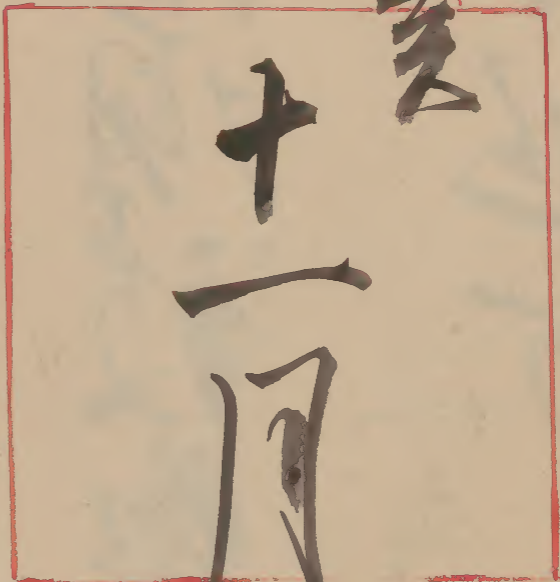 十一月